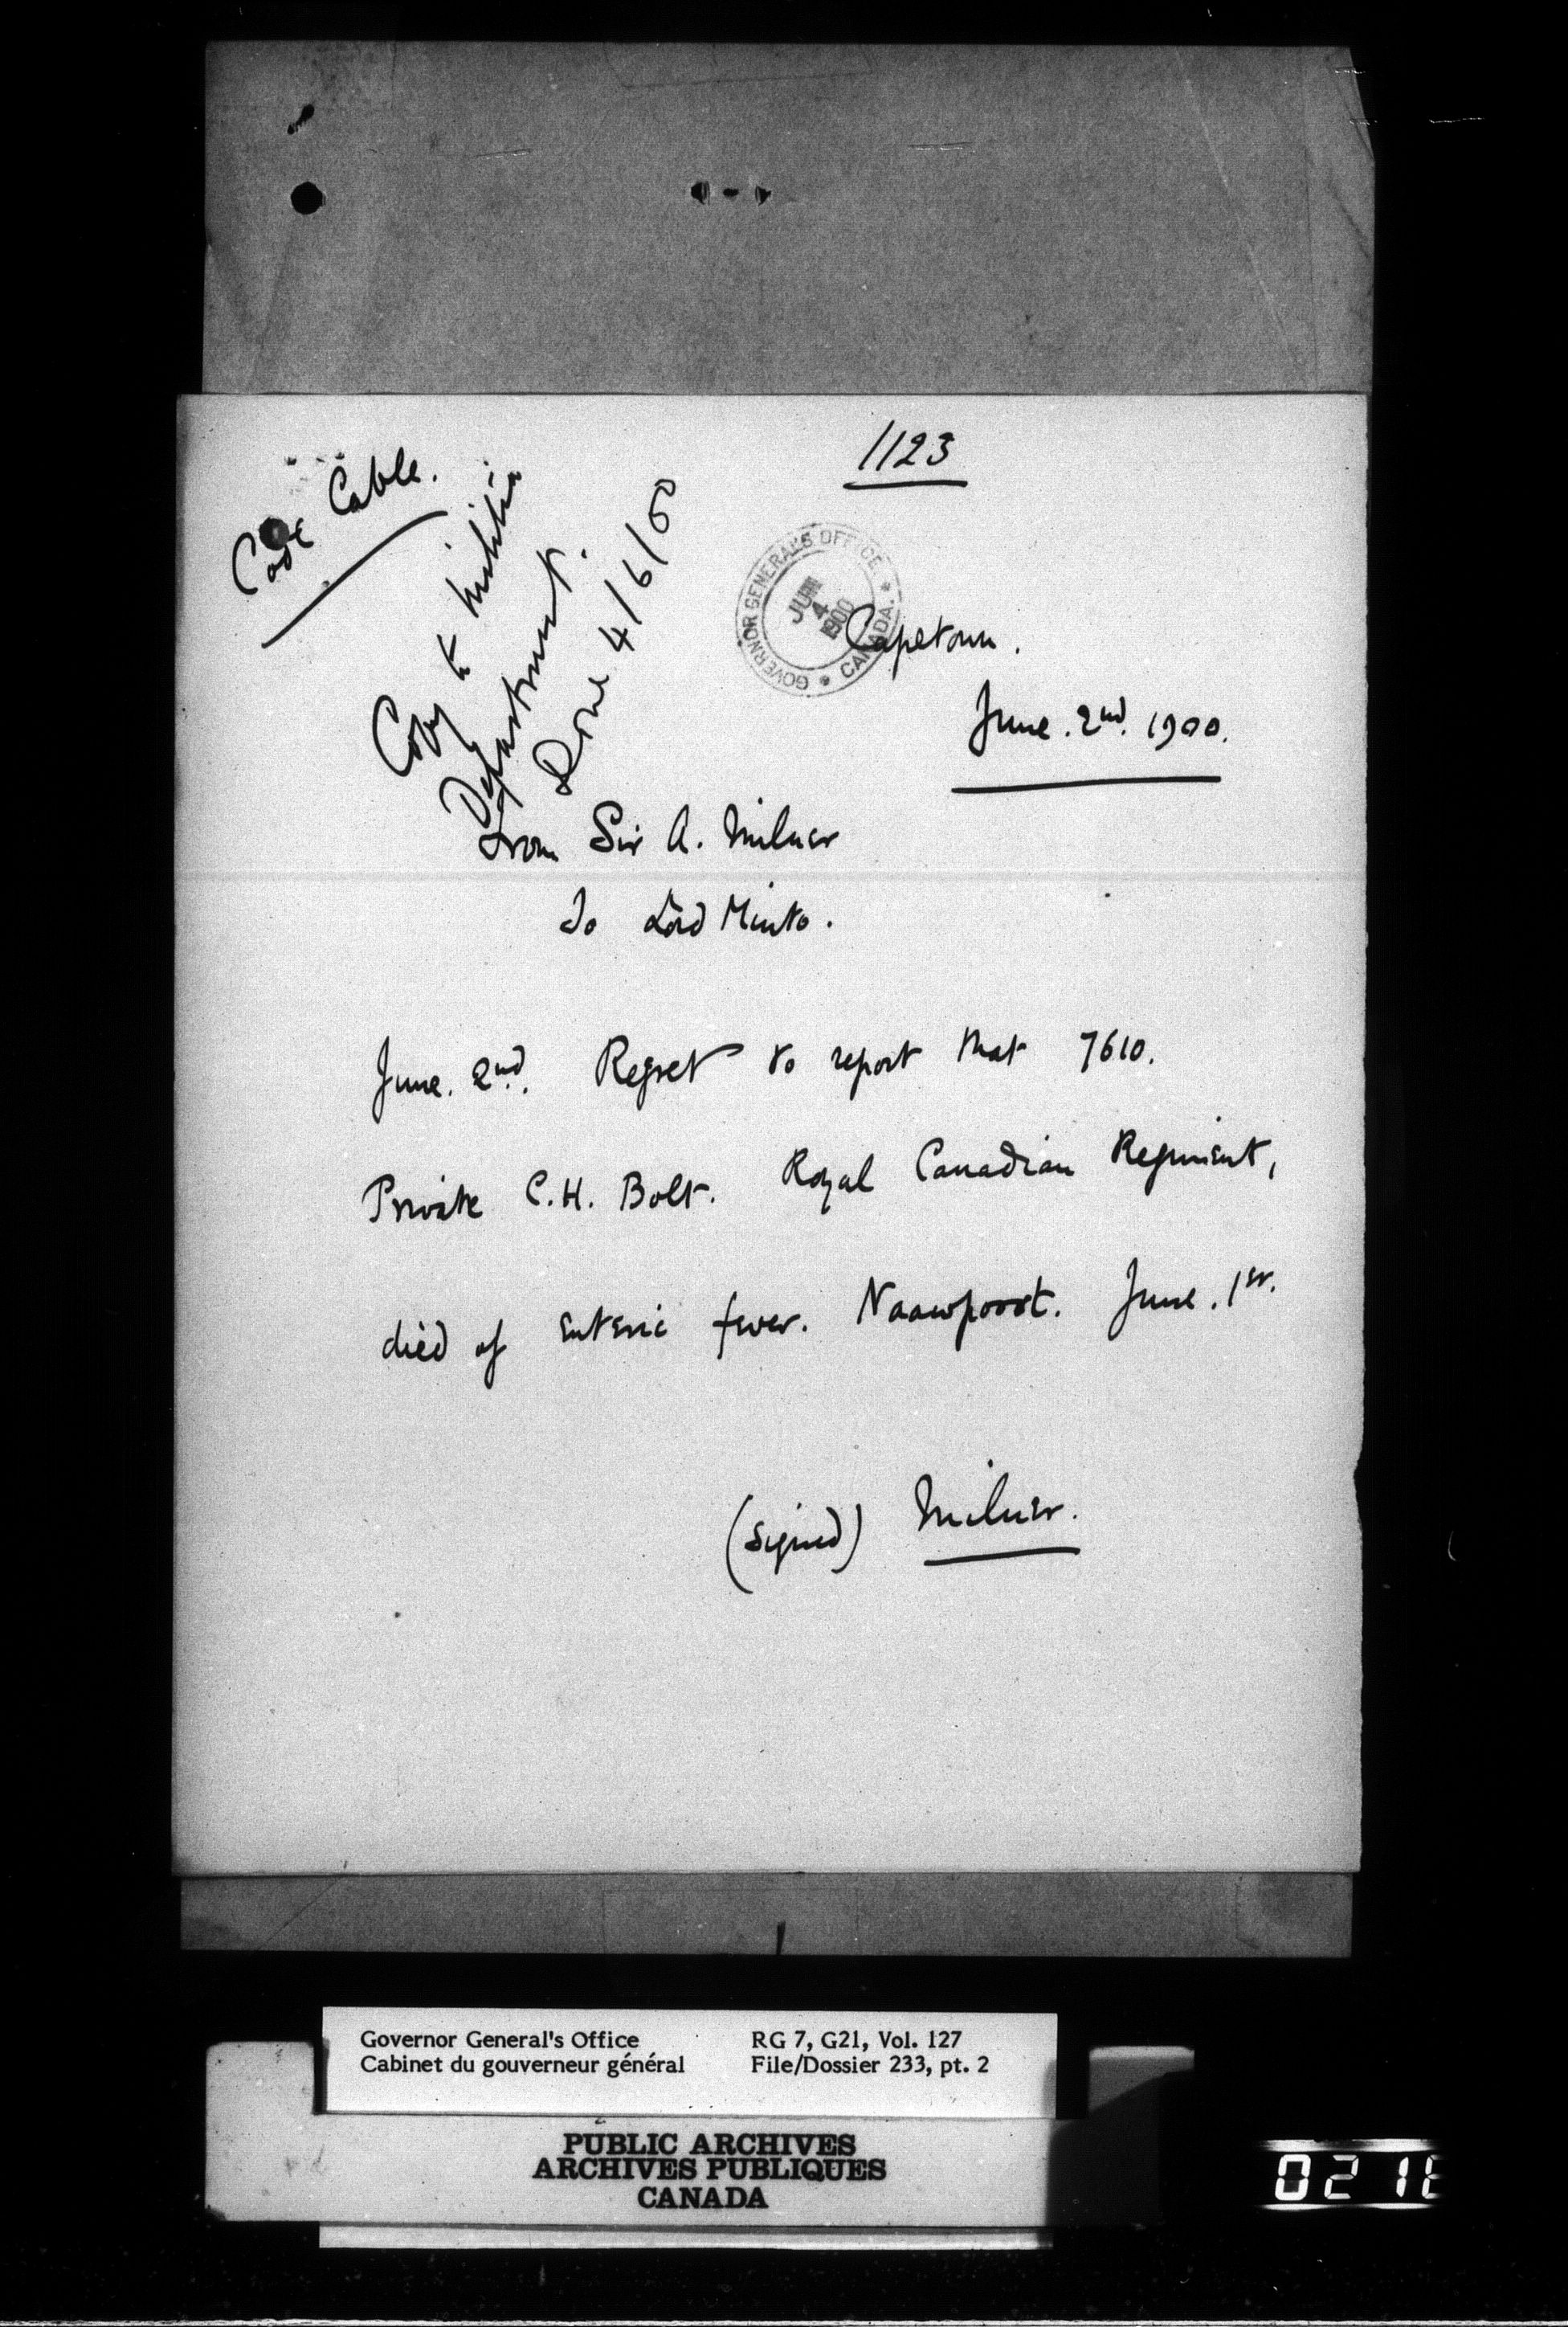 1123
Code Cable.
Copy to Militia
Department.
Done 4/6/00
GOVERNOR GENERAL'S OFFICE. * CANADA. *
JUN
4
1900
Capetown.
June. 2nd. 1900.
From Sir A. Milner
To Lord Minto.
June. 2nd. Regret to report that 7610.
Private C.H. Bolt. Royal Canadian Regiment,
died of enteric fever. Naawpoort. June. 1st.
(signed) Milner.
Governor General's Office RG 7, G21, Vol. 127
Cabinet du gouverneur général File/Dossier 233, pt. 2
PUBLIC ARCHIVES
ARCHIVES PUBLIQUES
CANADA